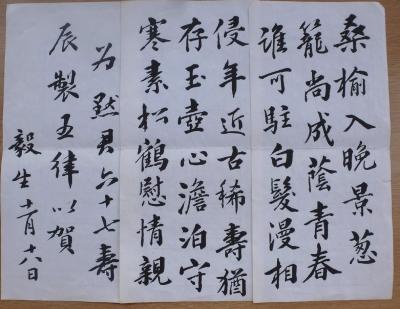 桑榆入晚景葱
籠尚成蔭青春
誰可駐白髮漫相
侵年近古稀壽猶
存玉壺心澹泊守
寒素松鶴慰情親
为默君六十七壽
辰製五律以賀
毅生十月十八日